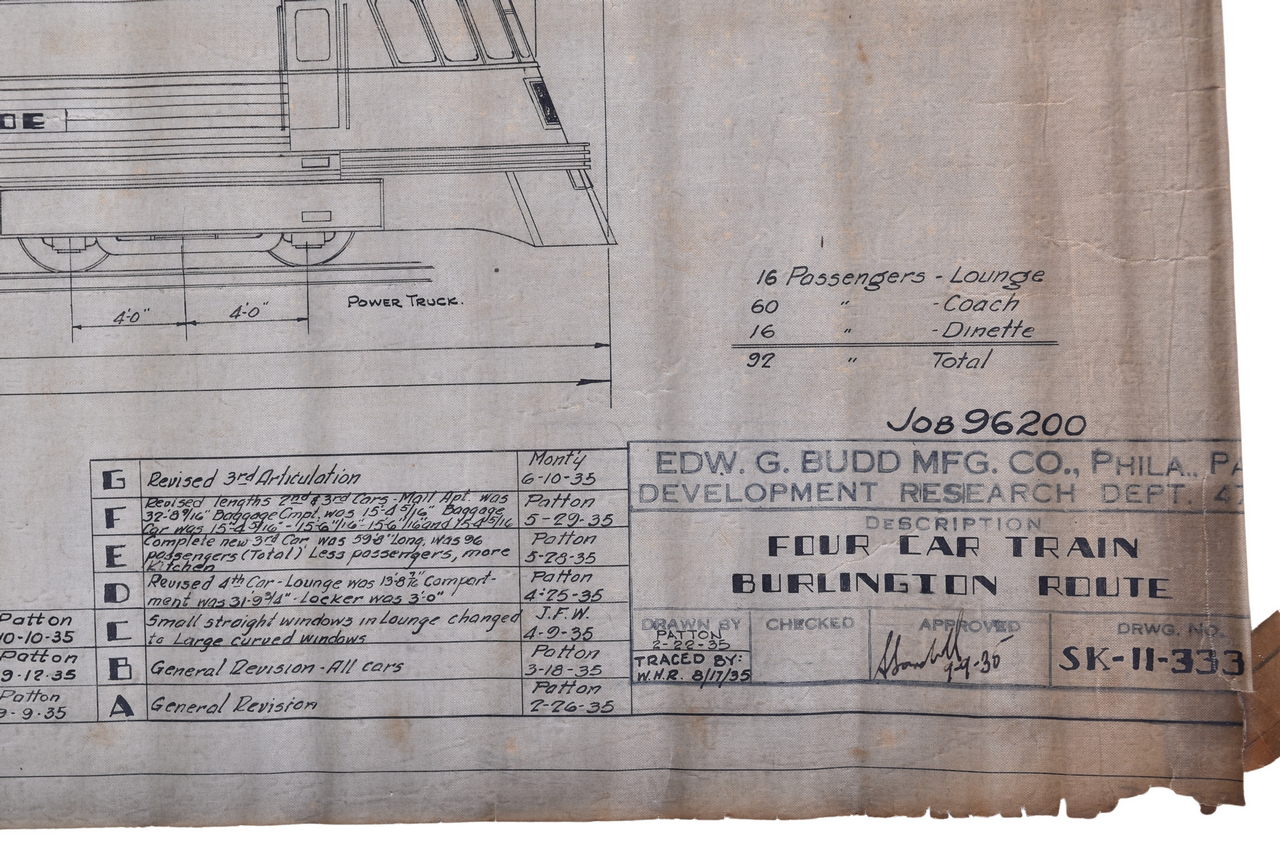 OE
4'-0"
4'-0"
POWER TRUCK.
16 Passengers - Lounge
60 " - Coach
16 " - Dinette
92 " Total
JOB 96200
G Revised 3rd Articulation Monty 6-10-35
F Revised lengths 2nd & 3rd Cars - Mail Apt. was
32'-8 9/16" Baggage Cmpt. was 15'-4 5/16" Baggage
Car was 15'-4 5/16" - 15'-6 1/16" 15'-6 1/16 and 15'-4 5/16 Patton 5-29-35
E Complete new 3rd Car was 59'-8" Long, was 96
passengers (Total) Less passengers, more
Kitchen Patton 5-28-35
D Revised 4th Car - Lounge was 13'-8 7/16" Compart-
ment was 31'-9 3/4" - Locker was 3'-0" Patton 4-25-35
C Small straight windows in Lounge changed
to Large curved windows J.F.W. 4-9-35
B General Revision - All cars Patton 3-18-35
A General Revision Patton 2-26-35
Patton
10-10-35
Patton
9-12-35
Patton
9-9-35
EDW. G. BUDD MFG. CO., PHILA., PA
DEVELOPMENT RESEARCH DEPT. 47
DESCRIPTION
FOUR CAR TRAIN
BURLINGTON ROUTE
DRAWN BY
PATTON
2-22-35
TRACED BY:
W.H.R. 8/17/35
CHECKED
APPROVED
DRWG. NO.
SK-11-333